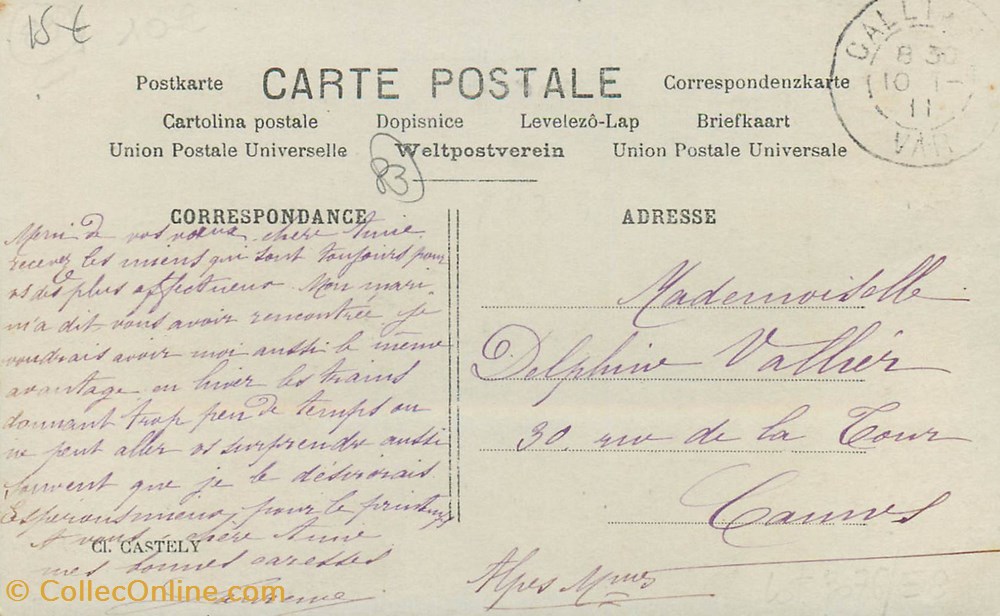 15 €
CALLI
8 30
10 1-
11
VAR
Postkarte CARTE POSTALE Correspondenzkarte
Cartolina postale Dopisnice Levelezô-Lap Briefkaart
Union Postale Universelle Weltpostverein Union Postale Universale
83
CORRESPONDANCE
Merci de vos vœux, chère
recevez les miens qui sont toujours pour
vs des plus affectueux. Mon mari
m'a dit vous avoir rencontrée, je
voudrais avoir moi aussi le même
avantage en hiver les trains
donnant trop peu de temps on
ne peut aller vs surprendre aussi
souvent que je le désirerais
Espérons mieux, pour le printemps
A vous, chère
mes bonnes caresses
Cl. CASTELY
ADRESSE
Mademoiselle
Delphine Vallier
30 rue de la Tour
Cannes
Alpes Mmes
© CollecOnline.com